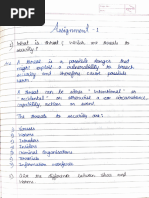 Assignment - 1
1) What is threat ( which are threats to
security?
Ans A threat is a possible danger that
might exploit a vulnerability to breach
security and therefore cause possible
harm.
A threat can be either 'intentional' or
'accidental' or otherwise a circumstance,
capability, action or event.
The threats to security are:
Viruses
Worms
Intruders
Insiders
Criminal Organizations
Terrorists
Information warfare
2) Give the difference between virus and
worms